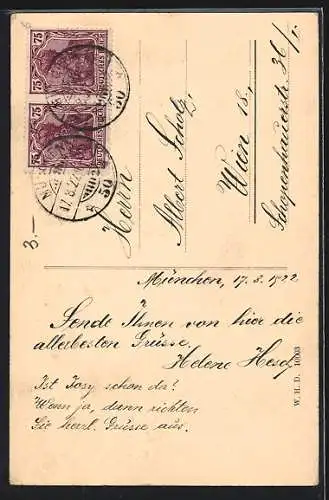 75
75
Herrn
Albert Scholz,
Wien 18.,
Schopenhauerstr 36/
3.—
München, 17.8.1922
Sende Ihnen von hier die
allerbesten Grüsse.
Helene
Ist Josy schon da?
Wenn ja, dann richten
Sie herzl. Grüsse aus.
W. H. D. 1003